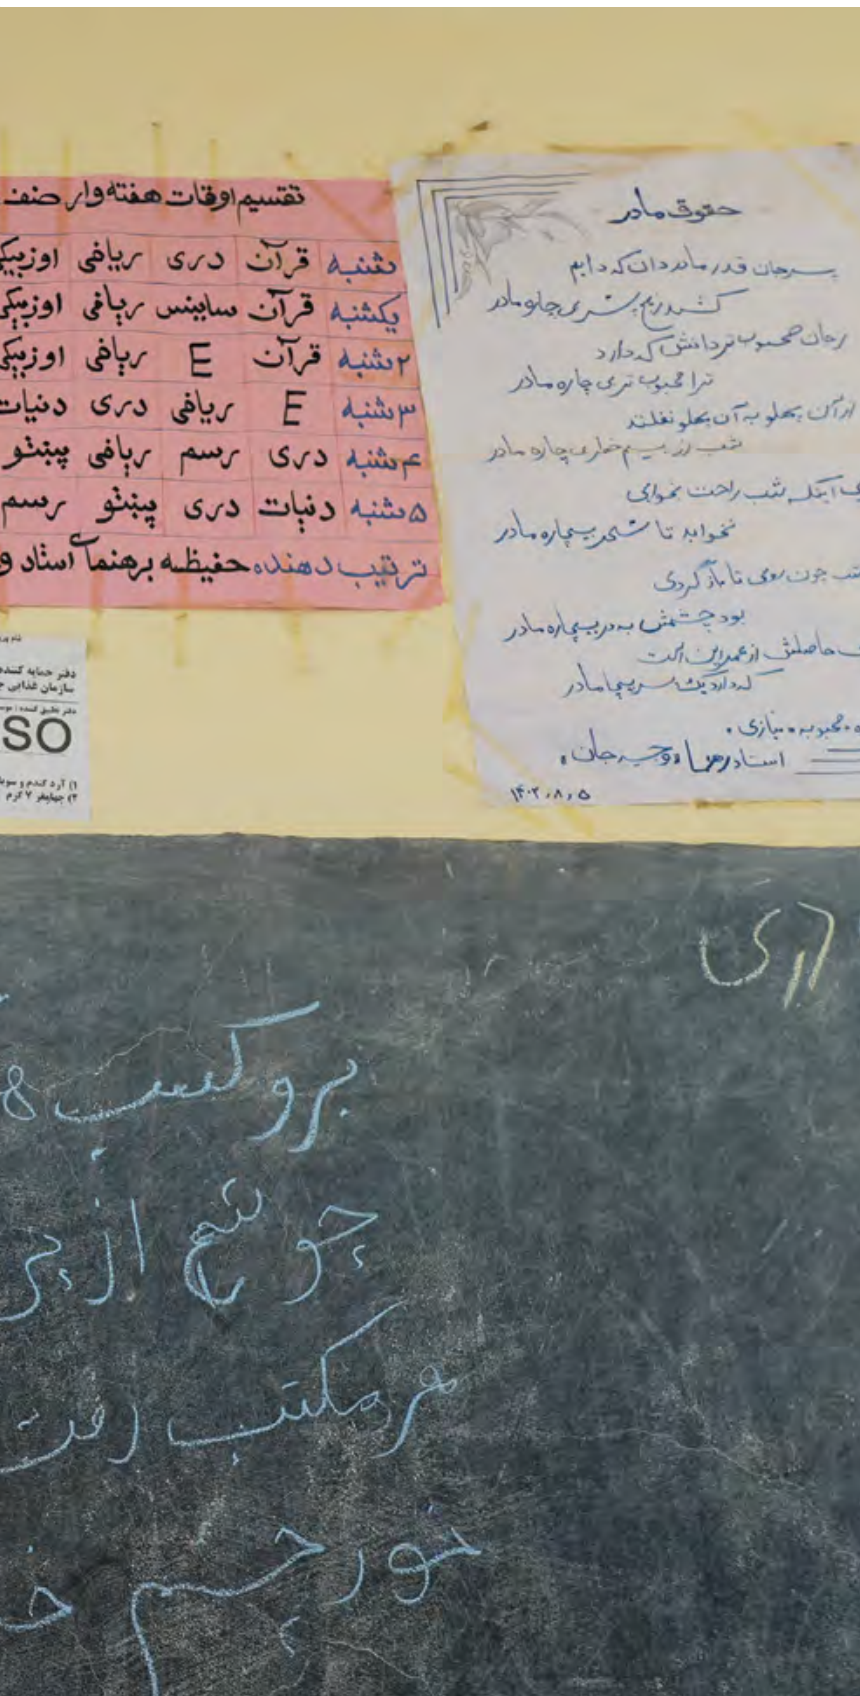 تقسیم اوقات هفته وار صنف
شنبه قرآن دری ریاضی اوزبیکی
یکشنبه قرآن ساینس ریاضی اوزبیکی
۲شنبه قرآن E ریاضی اوزبیکی
۳شنبه E ریاضی دری دنیات
۴شنبه دری رسم ریاضی پښتو
۵شنبه دنیات دری پښتو رسم
ترتیب دهنده حفیظه برهنمای استاد و
حقوق مادر
پسرجان قدر مادر دان که دایم
کشد رنج پسر بیچاره مادر
محبوب تر دانش که دارد
ترا محبوب تر بیچاره مادر
از آن پهلو به آن پهلو نغلتد
شب از بیم خطر بیچاره مادر
اینکه شب راحت بخوابی
نخوابد تا سحر بیچاره مادر
شب چون روی تا باز گردی
بود چشمش به در بیچاره مادر
حاصلش از عمر این است
که دارد یک پسر بیچا مادر
محبوبه نیازی
استاد رهنما
۱۴۰۲،۸،۵
دفتر حمایه کننده
سازمان غذایی
SO
۱) آرد گندم و سویا
۷ گرم
دری
برو کسب
چو شمع از پی
هر مکتب رفت
نور چشم